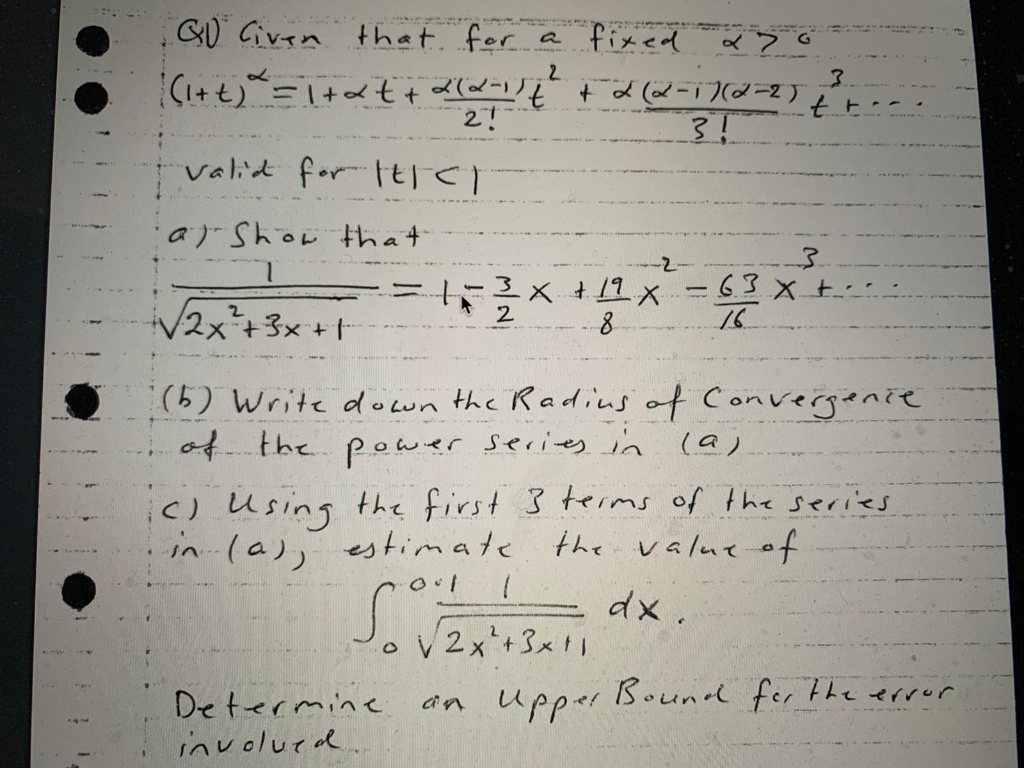 Q1) Given that for a fixed α > 0
(1+t)^α = 1 + αt + α(α-1)/2! t² + α(α-1)(α-2)/3! t³ + ...
valid for |t| < 1
a) Show that
1/√(2x²+3x+1) = 1 - 3/2 x + 19/8 x² - 63/16 x³ + ...
(b) Write down the Radius of Convergence
of the power series in (a)
c) Using the first 3 terms of the series
in (a), estimate the value of
∫₀^0.1 1/√(2x²+3x+1) dx.
Determine an Upper Bound for the error
involved